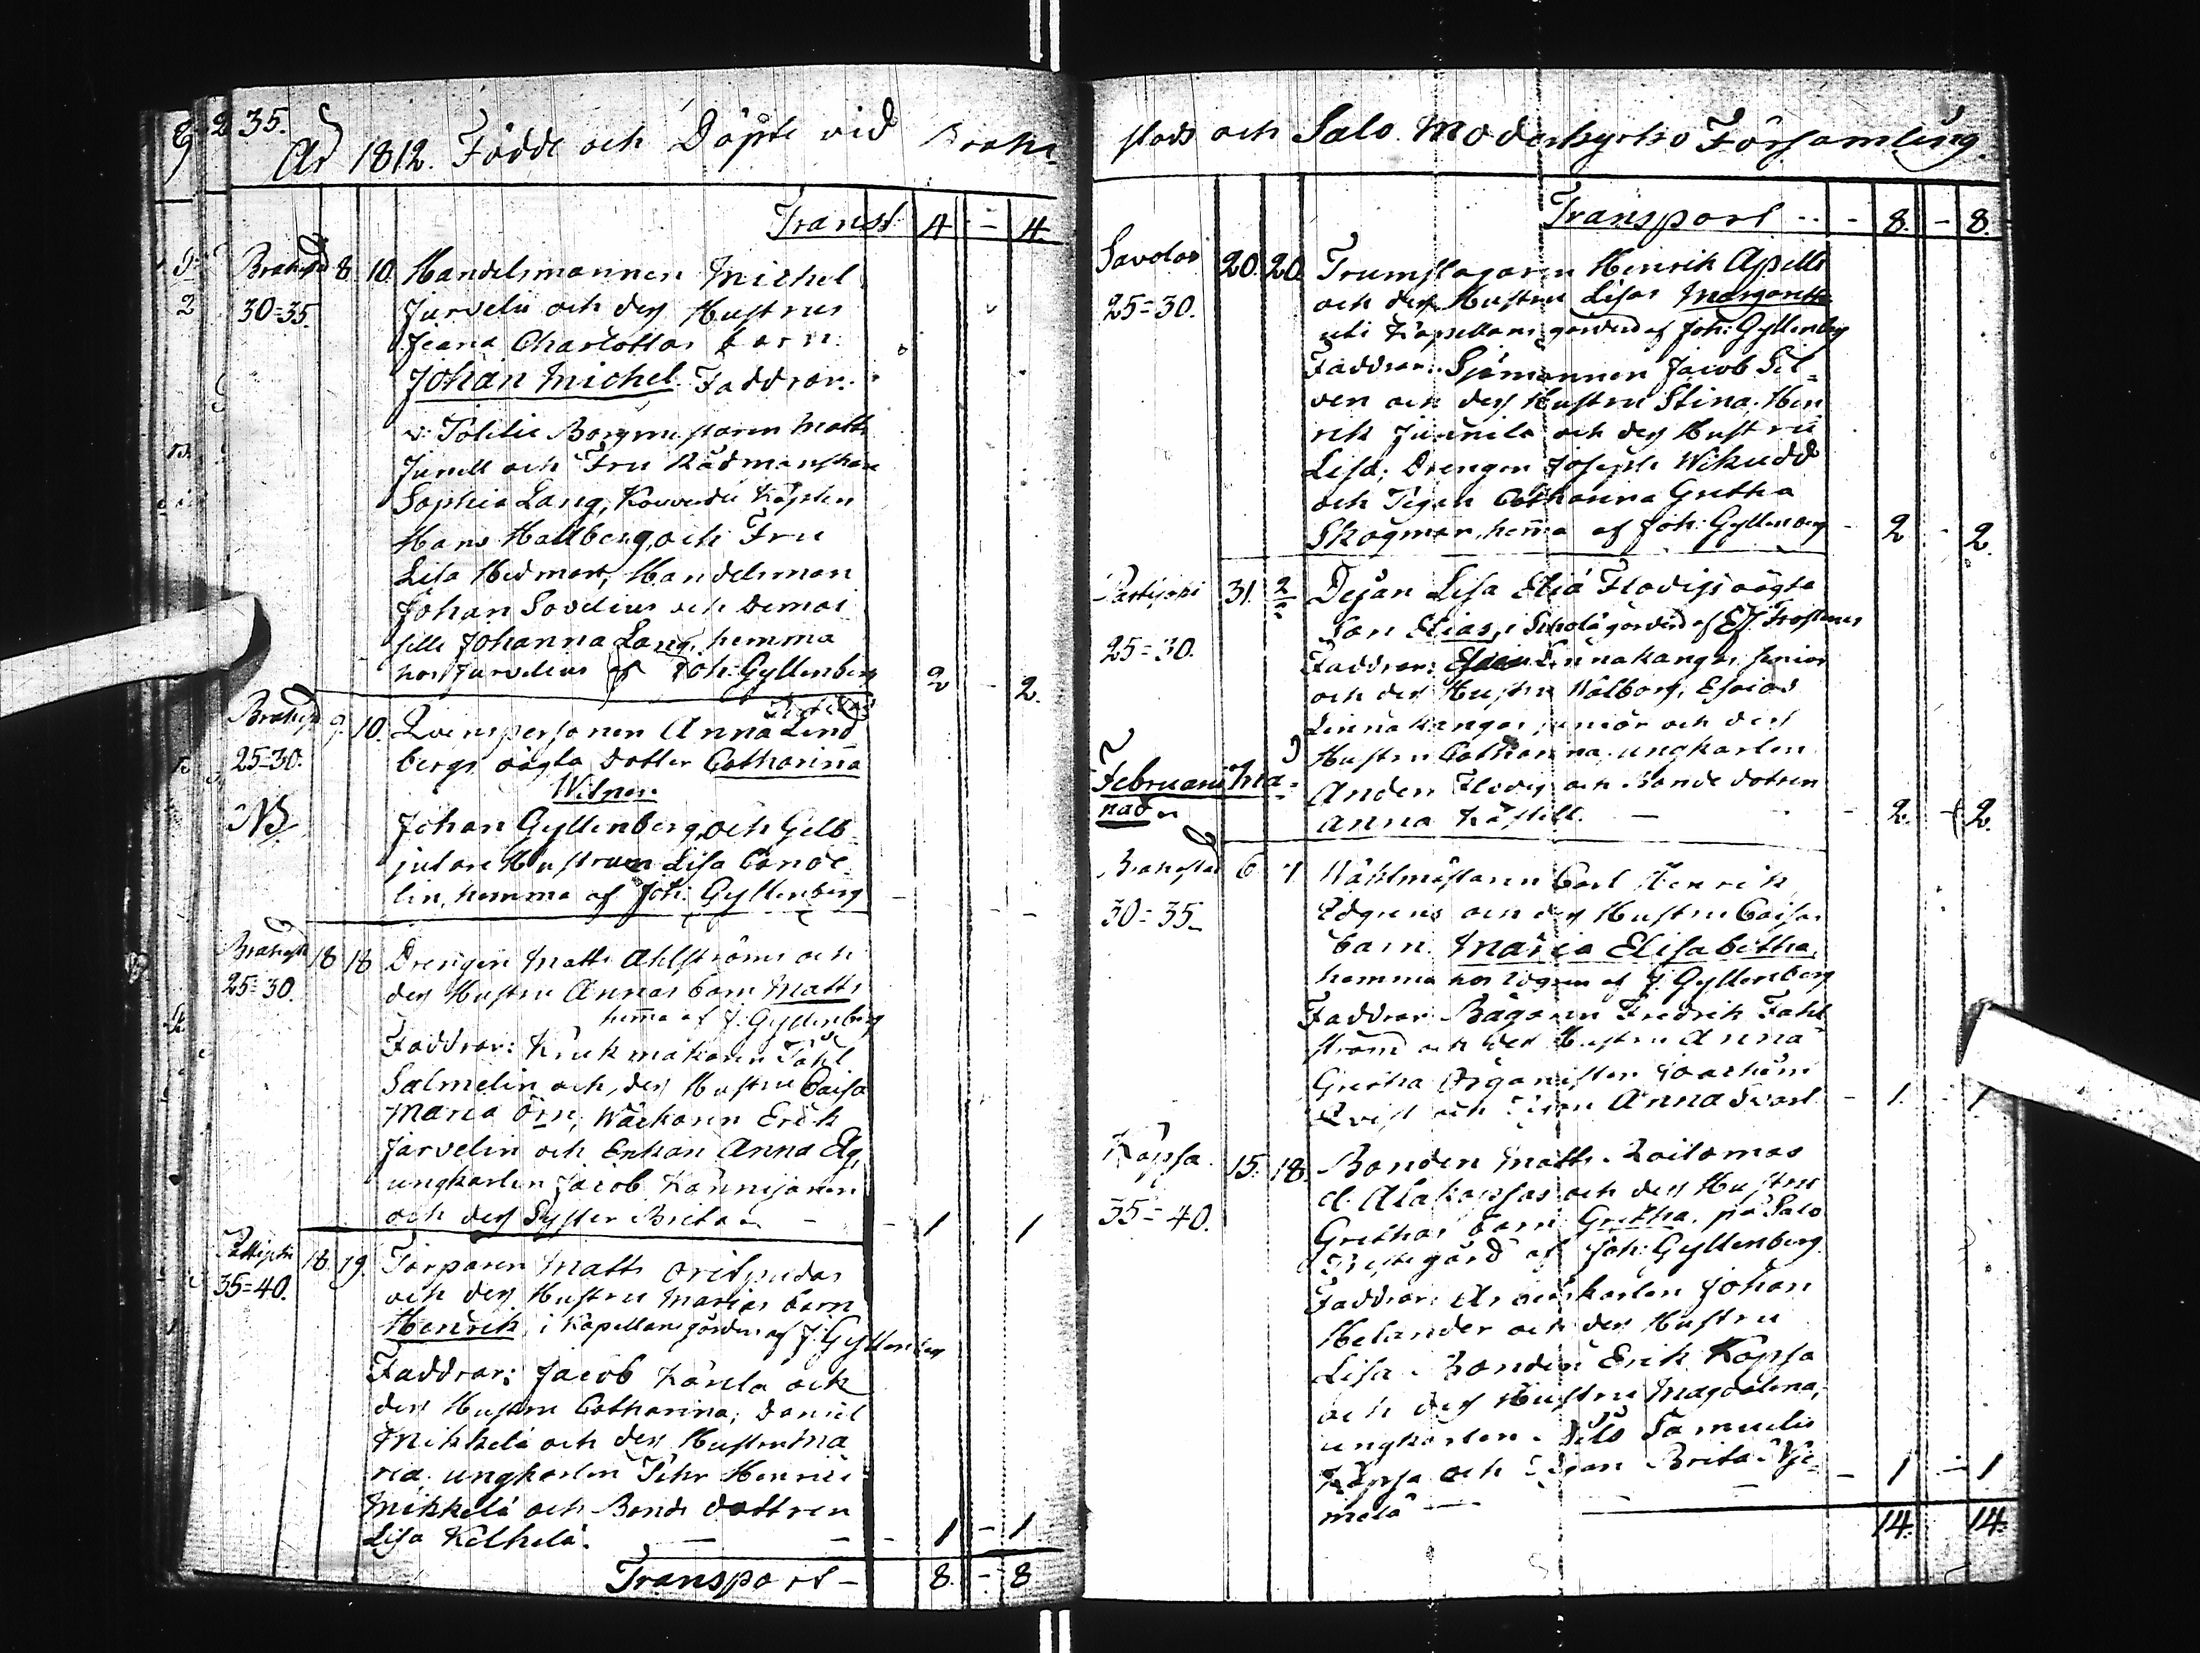 235.
Ad 1812. Födde och Döpte vid Brahe
Transt 4 - 4.
Brahestd 8. 10. Handelsmannen Michel
30=35. Jurvelii och dess Hustrus
Charlottas barn
Johan Michel. Faddrar:
v: Politie Borgmestaren Matts
Junell och Fru Rådmanskan
Sophia Lang, Kapten
Hans Hallberg, och Fru
Lisa Hedman, Handelsman
Johan Sovelius och Demoi
selle Johanna Lang, hemma
hos Jurvelius af Joh: Gyllenberg 2 - 2.
Brahestd 9. 10. Qvinspersonen Anna Lind
25=30. bergs oägta dotter Catharina
Witnen
NB. Johan Gyllenberg, och Gelb
jutare Hustrun Lisa Carol
lin, hemma af Joh: Gyllenberg - - -
Brahestd 18 18 Drengen Matts Ahlströms och
25=30. dess Hustru Annas barn Matts
hem̃a af J: Gyllenberg
Faddrar: Krukmakaren Påhl
Salmelin och dess Hustru Caisa
Maria Örn, Wäckaren Erik
Jarvelin och Enkan Anna Elg,
ungkarlen Jacob Kannisanen
och dess Syster Brita - 1 1
Pattijoki 18. 19. Torparen Matts
35=40. och dess Hustrus Marias barn
Henrik, i Kapellans gården af J: Gyllenberg
Faddrar: Jacob och
dess Hustru Catharina; Daniel
Mikkelä och dess Hustru Ma
ria. ungkarlen Pehr Henric
Mikkelä och Bonde dottren
Lisa Kelhelä. - - - 1 - 1
Transport - 8. - 8
stads och Salo Moderkyrko Församling.
Transport - - 8. - 8.
Savolax 20. 20. Trumslagaren Henrik Apells
25=30. och dess Hustru Lisas Margaretha
uti Kapellans gården af Joh: Gyllenberg
Faddrar: Sjömannen Jacob Sil=
ven och dess Hustru Stina. Hen
rik Junnila och dess Hustru
Lisa; Drengen Joseph Wikudd
och Pigan Catharina Gretha
Skogman, hem̃a af Joh: Gyllenberg - 2 - 2.
Pattijoki 31. 2/2 Pejan Lisa Elia Flodigs oägta
25=30. Son Elias, i gården af Es: Frosterus
Faddrar: Linnakangas senior
och dess Hustru Walborg, Esaias
Linnakangas junior och dess
Hustru Catharina. ungkarlen
Anders Flodig och Bonde dotren
Anna - - 2. - 2.
Februarii Må=
nad
Brahestad 6 7 Wäktmästaren Carl Henrik
30=35. Edgrens och dess Hustru Caisas
barn. Maria Elisabetha,
hemma hos Edgren af J. Gyllenberg
Faddrar Bagaren Fredrik Fahl
ström och dess Hustru Anna
Gretha Organisten
Qvist och Pigan Anna - 1. - 1
Kopsa. 15. 18. Bonden Matts
35=40. d. Alakopsas och dess Hustrus
Grethas barn Gretha, på Salo
Prestegård af Joh: Gyllenberg.
Faddrar: Johan
Helander och dess Hustru
Lisa. Bonden Erik Kopsa
och dess Hustru Magdalena,
ungkarlen Nils Samuelis
Kopsa och Pigan Brita
melä - - 1 - 1
14. 14.